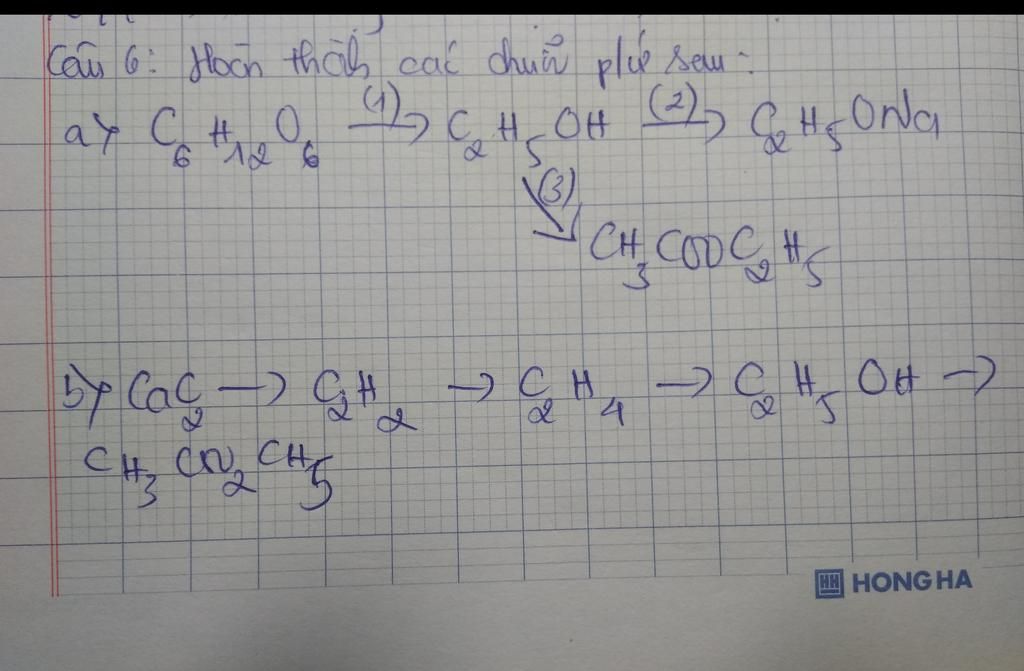 Câu 6: Hoàn thành các chuỗi pứ sau:
a) C6H12O6 (1)→ C2H5OH (2)→ C2H5ONa
↘(3)
CH3COOC2H5
b) CaC2 → C2H2 → C2H4 → C2H5OH →
CH3CO2CH5
HONG HA